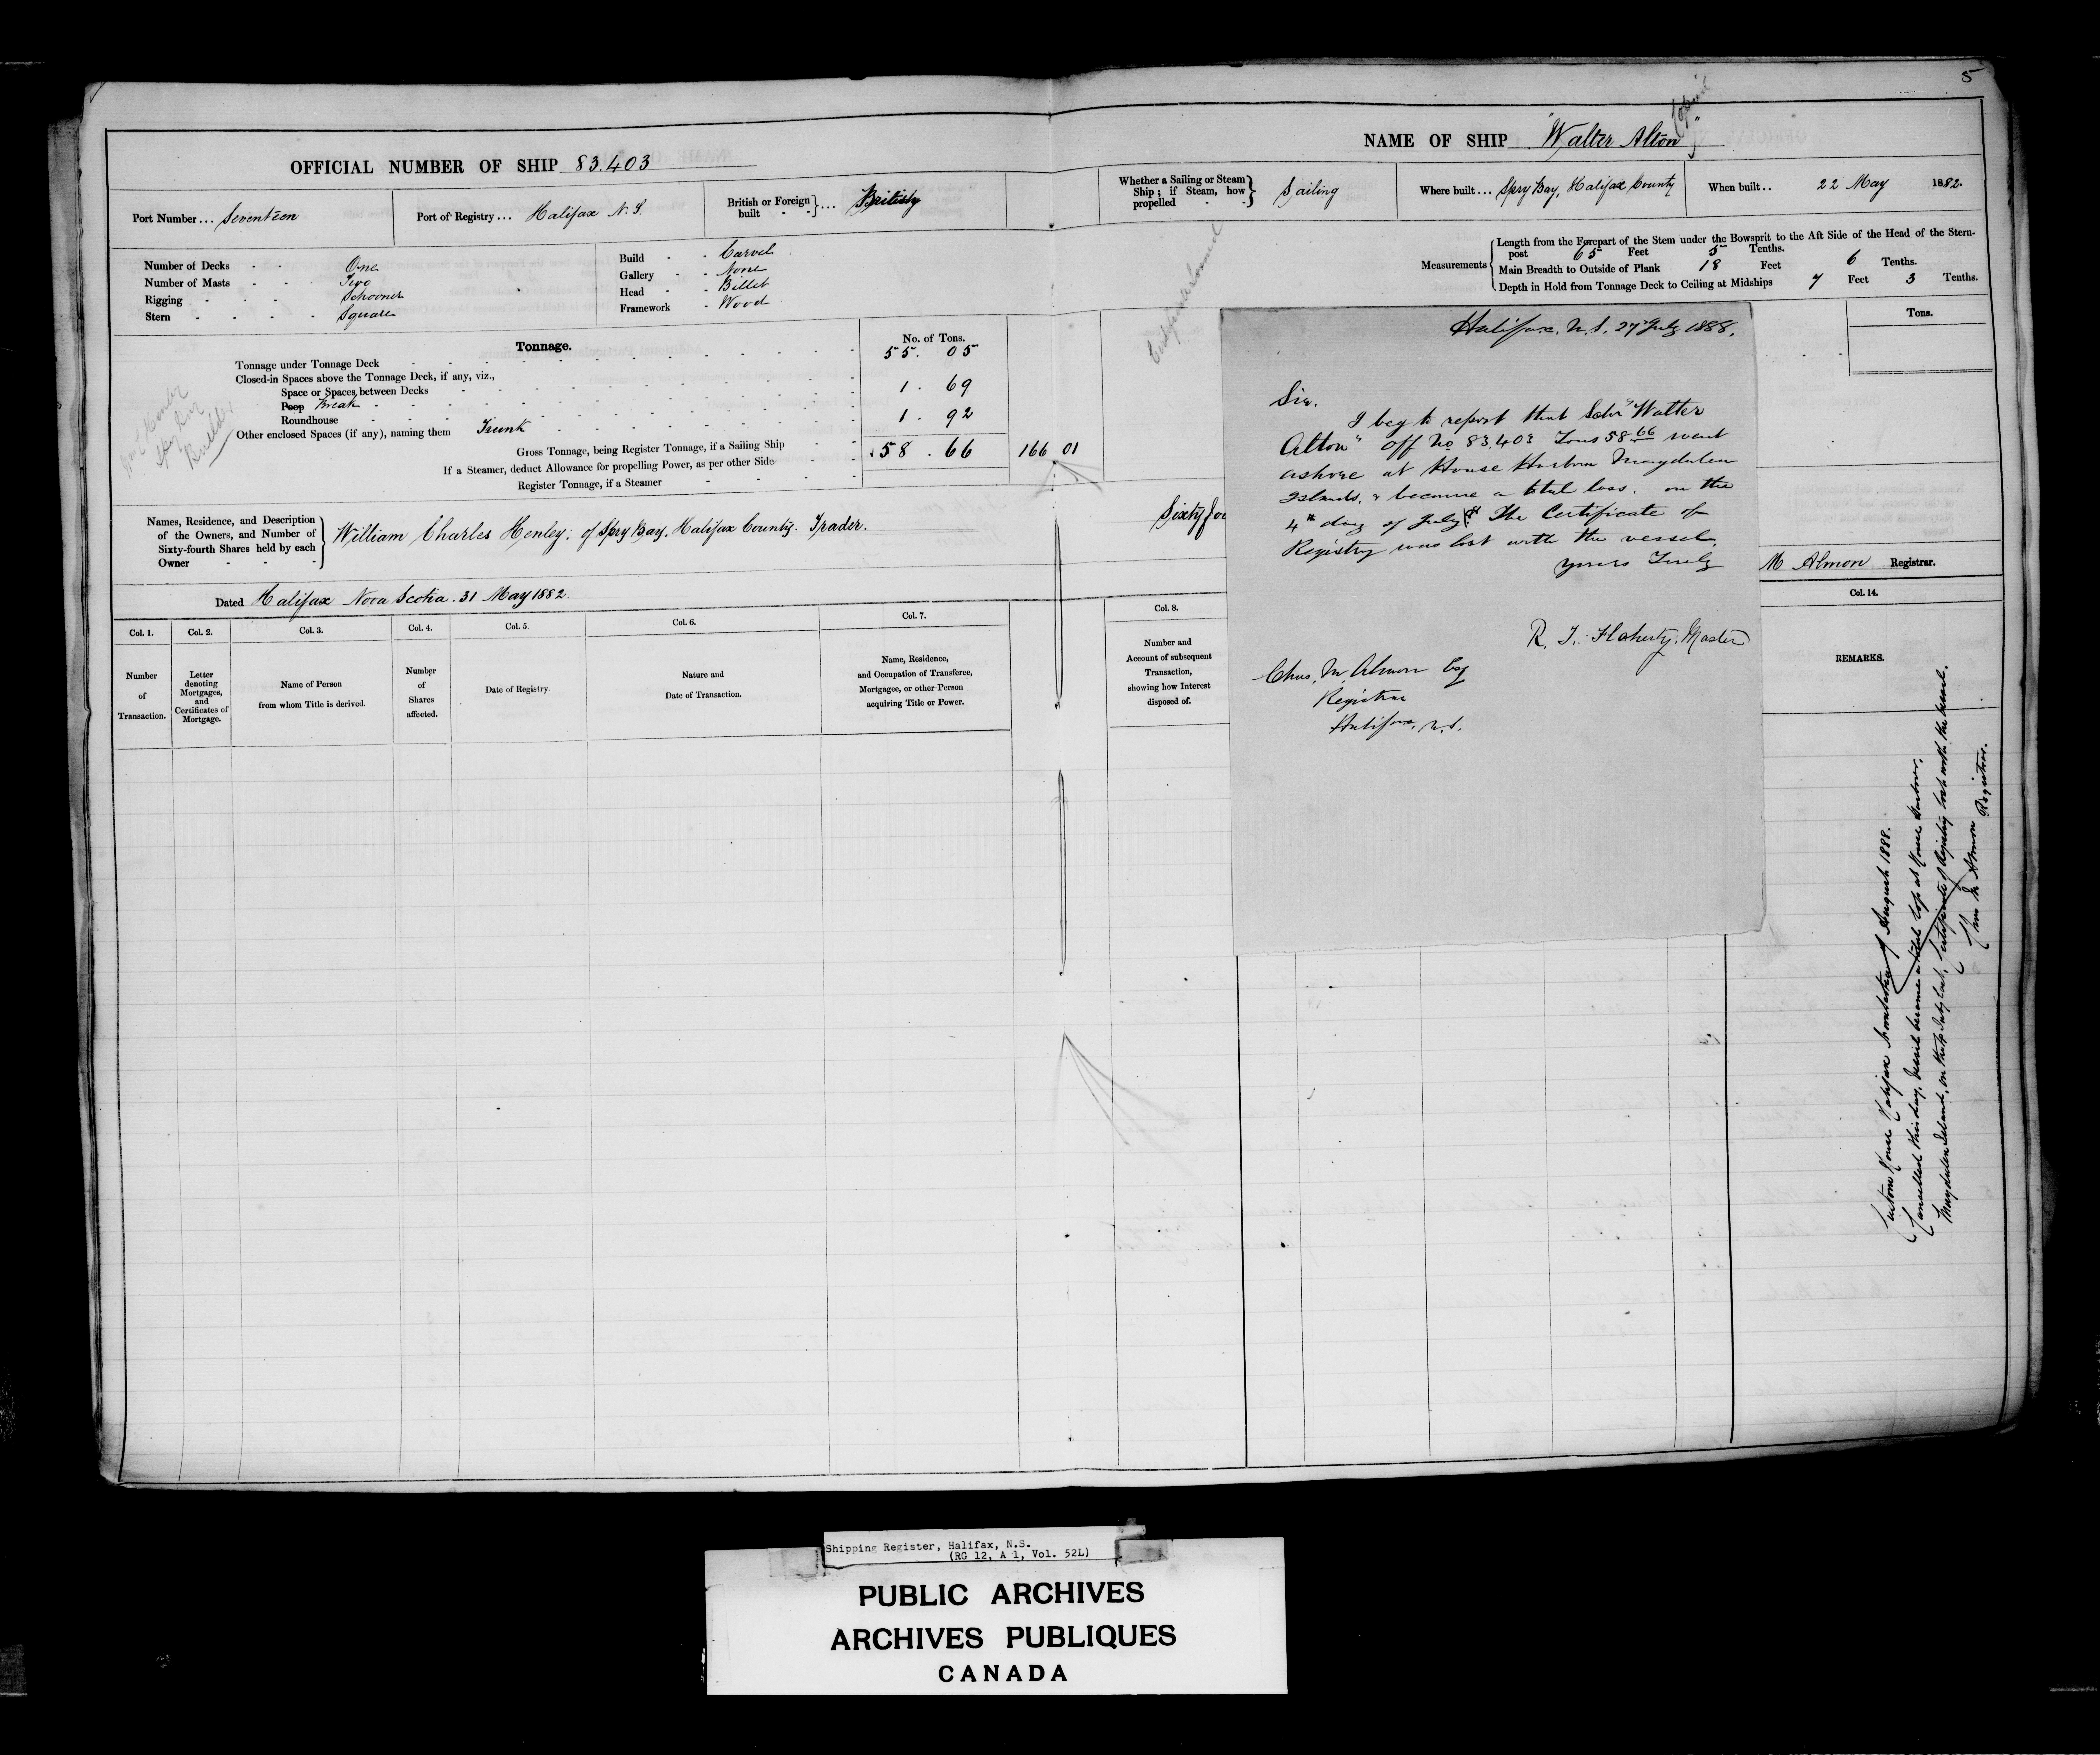 5
OFFICIAL NUMBER OF SHIP 83.403
NAME OF SHIP "Walter Alton"
Port Number... Seventeen
Port of Registry... Halifax N.S.
British or Foreign built - - } ... British
Whether a Sailing or Steam Ship; if Steam, how propelled - - } Sailing
Where built... Spry Bay, Halifax County
When built.. 22 May 1882.
Number of Decks - - One
Number of Masts - - Two
Rigging - - - - Schooner
Stern - - - - Square
Build - - Carvel
Gallery - - None
Head - - Billet
Framework - Wood
Measurements { Length from the Forepart of the Stem under the Bowsprit to the Aft Side of the Head of the Stern-
post 65 Feet 5 Tenths.
Main Breadth to Outside of Plank 18 Feet 6 Tenths.
Depth in Hold from Tonnage Deck to Ceiling at Midships 7 Feet 3 Tenths.
Tonnage.
No. of Tons.
Tonnage under Tonnage Deck 55. 05
Closed-in Spaces above the Tonnage Deck, if any, viz.,
Space or Spaces between Decks
Poop Break 1. 69
Roundhouse
Other enclosed Spaces (if any), naming them Trunk 1. 92
Gross Tonnage, being Register Tonnage, if a Sailing Ship 58. 66 166 01
If a Steamer, deduct Allowance for propelling Power, as per other Side
Register Tonnage, if a Steamer
Builder
Tons.
Names, Residence, and Description
of the Owners, and Number of
Sixty-fourth Shares held by each
Owner
William Charles Henley: of Spry Bay, Halifax County. Trader.
Sixty fou
Dated Halifax Nova Scotia. 31 May 1882.
M Almon Registrar.
Col. 1.
Number
of
Transaction.
Col. 2.
Letter
denoting
Mortgages,
and
Certificates of
Mortgage.
Col. 3.
Name of Person
from whom Title is derived.
Col. 4.
Number
of
Shares
affected.
Col. 5.
Date of Registry.
Col. 6.
Nature and
Date of Transaction.
Col. 7.
Name, Residence,
and Occupation of Transferee,
Mortgagee, or other Person
acquiring Title or Power.
Col. 8.
Number and
Account of subsequent
Transaction,
showing how Interest
disposed of.
Col. 14.
REMARKS.
Halifax, N.S. 27 July 1888.
Sir.
I beg to report that Schr "Walter
Alton" Off No 83,403 Tons 58 66 went
ashore at House Harbour Magdalen
Islands, & became a total loss. on the
4th day of July. The Certificate of
Registry was lost with the vessel.
yours Truly
R. T. Flaherty, Master
Chas. M. Almon Esq
Registrar
Halifax, N.S.
Custom House Halifax Nova Scotia of August 1888.
Cancelled this day, Vessel became a total loss at House Harbour,
Magdalen Island, on the 4 July last, Certificate of Registry lost with the vessel.
Chas M Almon
Registrar.
Shipping Register, Halifax, N.S.
(RG 12, A 1, Vol. 52L)
PUBLIC ARCHIVES
ARCHIVES PUBLIQUES
CANADA